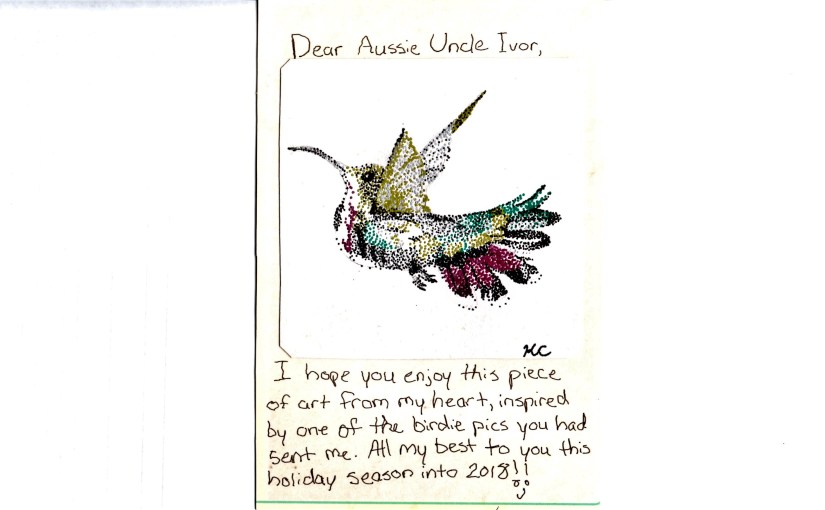 Dear Aussie Uncle Ivor,
KC
I hope you enjoy this piece
of art from my heart, inspired
by one of the birdie pics you had
sent me. All my best to you this
holiday season into 2018!!